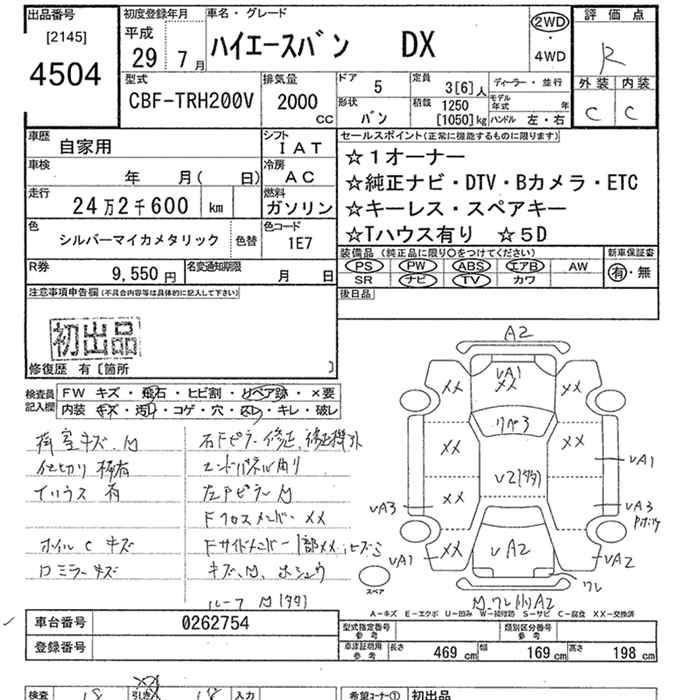 出品番号
[2145]
4504
初度登録年月
平成
29年7月
車名・グレード
ハイエースバン DX
2WD
・
4WD
評価点
R
外装 内装
C C
型式
CBF-TRH200V
排気量
2000
cc
ドア 5
定員 3[6]人
ディーラー・並行
形状 バン
積載 1250
[1050]kg
モデル年式 年
ハンドル 左・右
車歴
自家用
シフト
IAT
車検
年 月( 日)
冷房
AC
走行
24万2千600 km
燃料
ガソリン
色
シルバーマイカメタリック
色替
色コード
1E7
R券
9,550円
名変通知期限
月 日
セールスポイント(正常に機能するものに限ります)
☆1オーナー
☆純正ナビ・DTV・Bカメラ・ETC
☆キーレス・スペアキー
☆Tハウス有り ☆5D
装備品(純正品に限り○をつけてください)
PS PW ABS エアB AW
SR ナビ TV カワ
新車保証書
有・無
後日品
注意事項申告欄(不具合内容等は具体的に記入して下さい)
初出品
修復歴 有[箇所 ]
検査員記入欄
FW キズ・飛石・ヒビ割・リペア跡・×要
内装 キズ・汚レ・コゲ・穴・スレ・キレ・破レ
荷室キズ、M
仕切り板有
Tハウス 有
ホイル C キズ
ロミラーキズ
右Fピラー修正、修正機外
エンドパネル曲り
左Fピラー M
Fクロスメンバー XX
Fサイドメンバー1部XX
キズ、M、ホシュウ
ルーフ M
A2
VA1
XX
XX
XX
リペ3
XX
XX
V2
XX
VA1
VA3
VA3
VA1
XX
VA2
VA2
ワレ
スペア
A-キズ E-エクボ U-凹み W-補修跡 S-サビ C-腐食 XX-交換済
車台番号
0262754
登録番号
型式指定番号
参考
類別区分番号
参考
車庫証明用
参考
長さ 469 cm
幅 169 cm
高さ 198 cm
検査
18
引き
18
入力
希望コーナー①
初出品